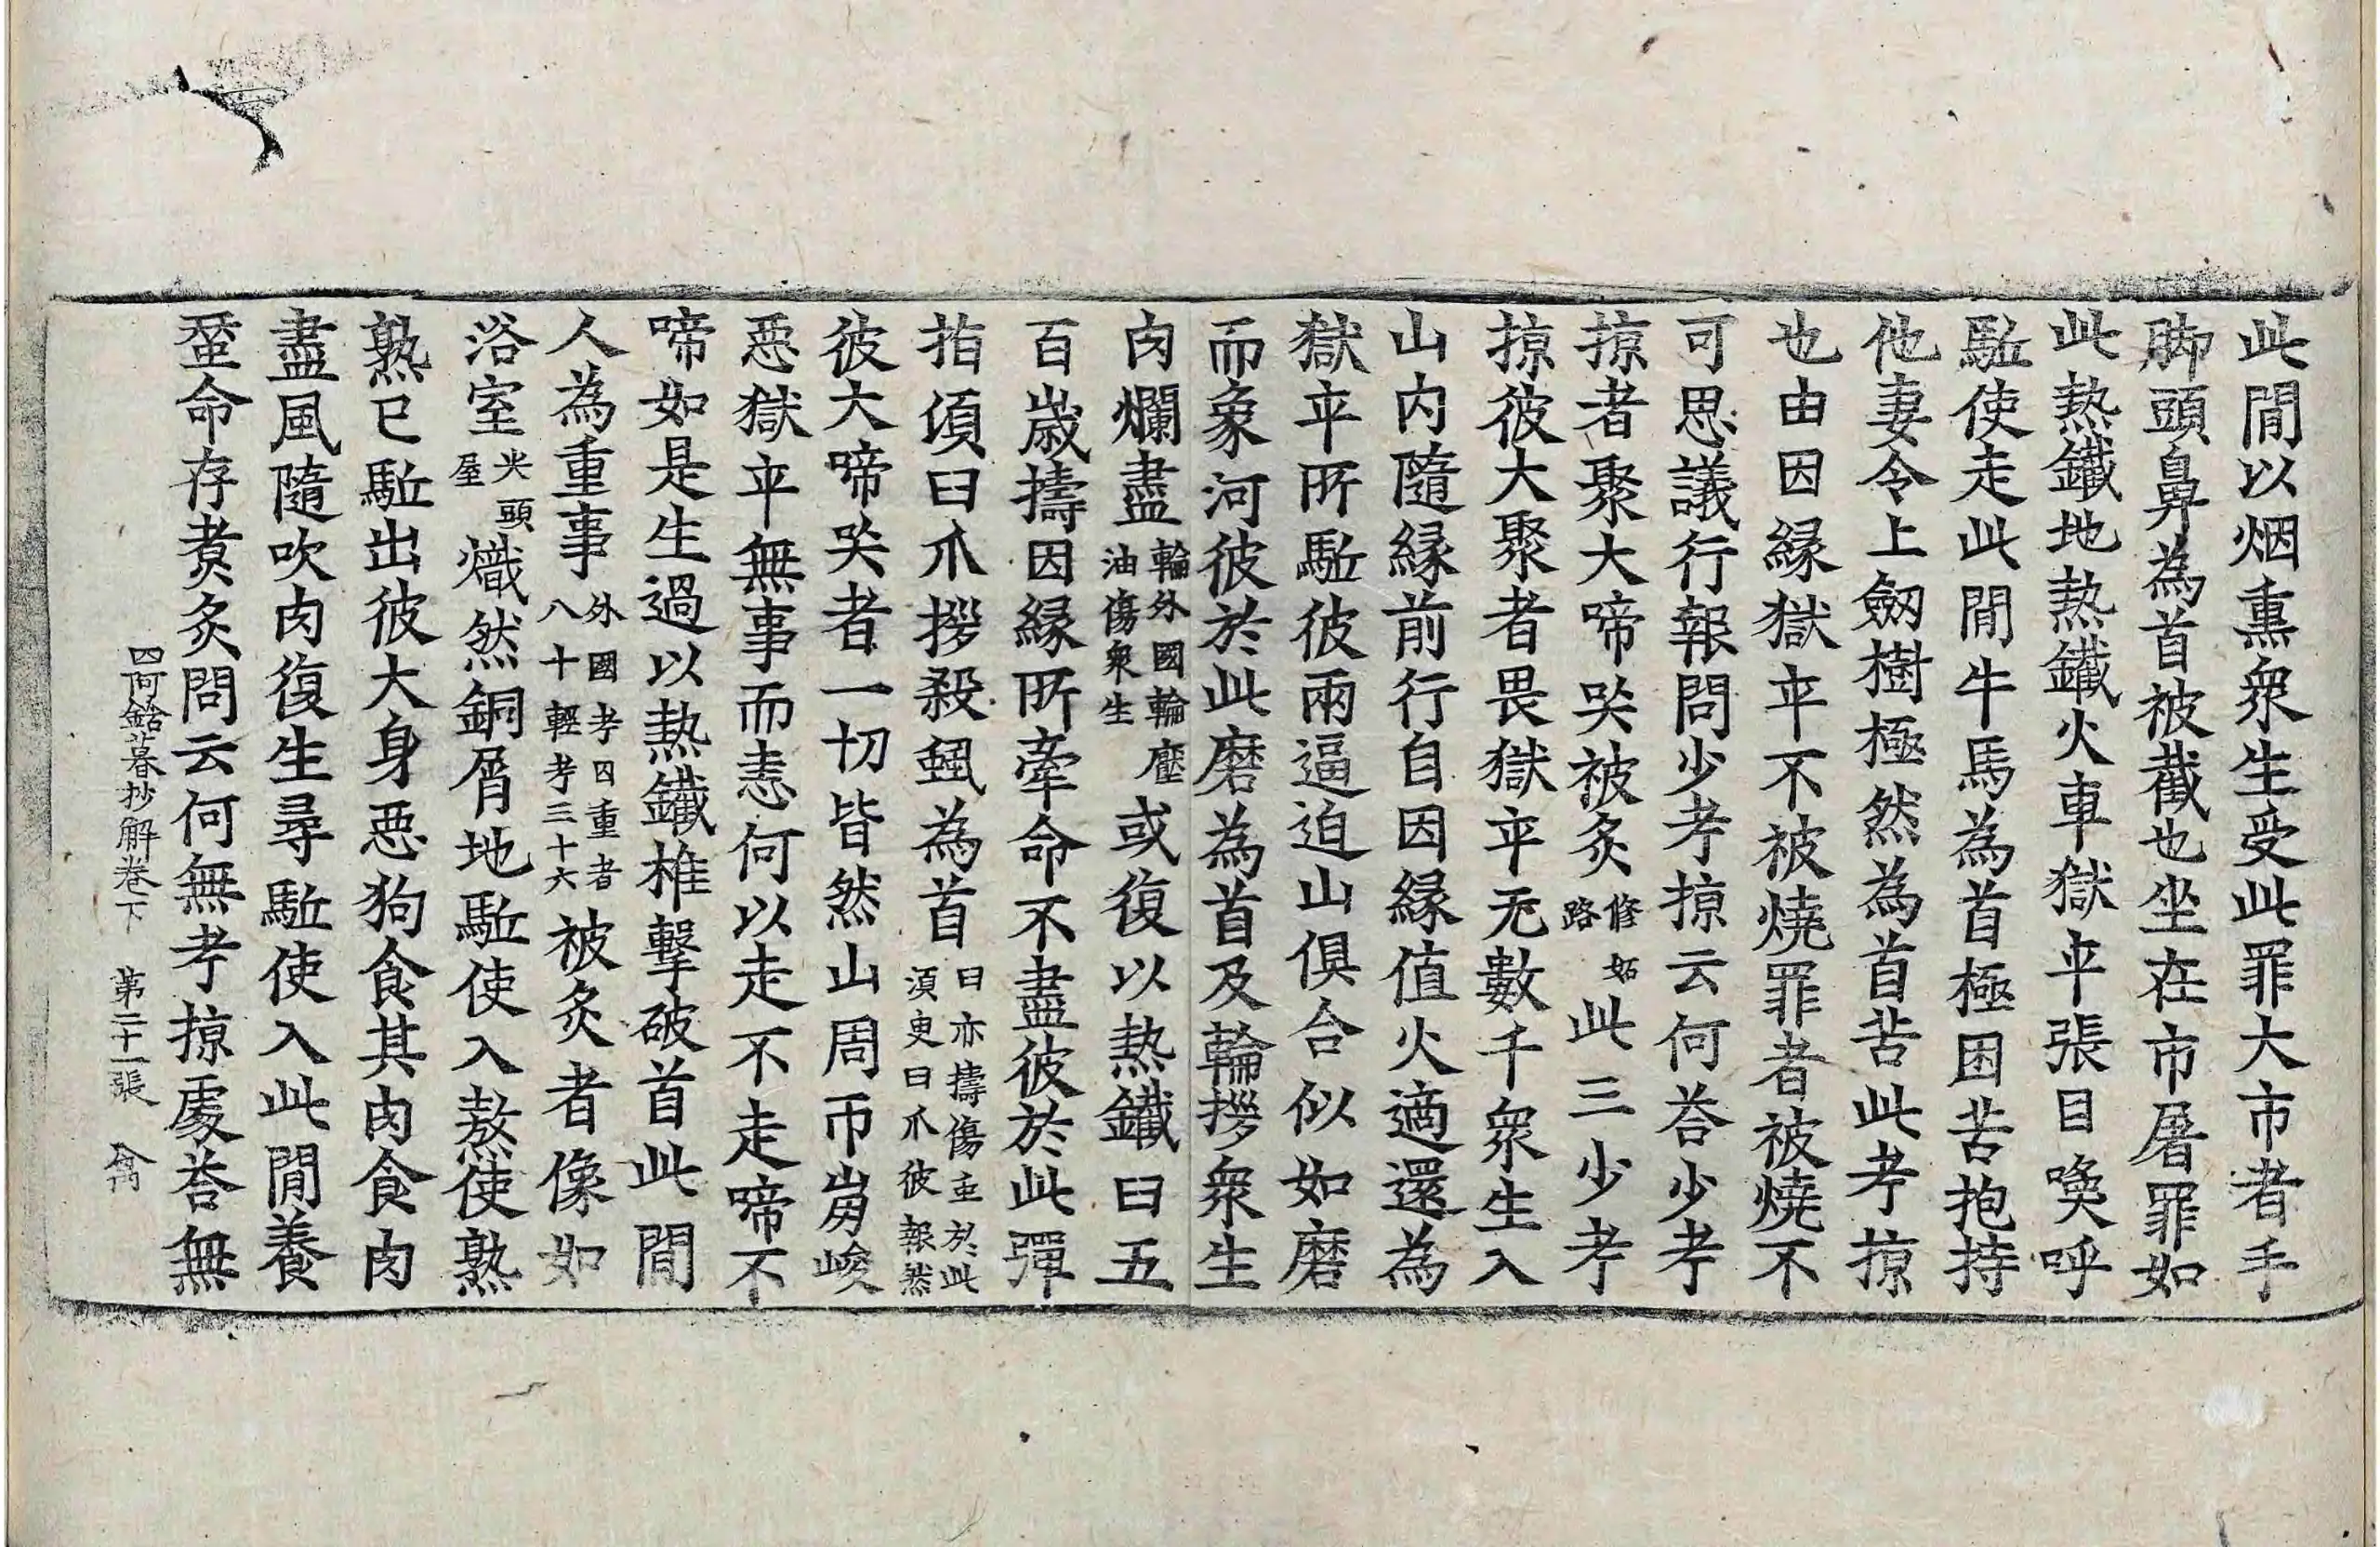 此間以烟熏衆生受此罪大市者手
脚頭鼻為首被截也坐在市屠罪如
此熱鐵地熱鐵火車獄卒張目喚呼
駈使走此間牛馬為首極困苦抱持
他妻令上劒樹極然為首苦此考掠
也由因緣獄卒不被燒罪者被燒不
可思議行報問少考掠云何荅少考
掠者聚大啼哭被炙修妬路此三少考
掠彼大聚者畏獄卒无數千衆生入
山内隨緣前行自因緣值火適還為
獄卒所駈彼兩逼迫山俱合似如磨
而象河彼於此磨為首及輪拶衆生
肉爛盡輪外國輪壓油傷衆生或復以熱鐵臼五
百歲擣因緣所牽命不盡彼於此彈
指湏臼爪拶殺䖝為首臼亦擣傷重於此湏更臼爪彼報然
彼大啼哭者一切皆然山周帀嵎峻
惡獄卒無事而恚何以走不走啼不
啼如是生過以熱鐵椎擊破首此間
人為重事外國考囚重者八十輕考三十六被炙者像如
浴室尖頭屋熾然銅屑地駈使入熬使熟
熟已駈出彼大身惡狗食其肉食肉
盡風隨吹肉復生尋駈使入此間養
蝅命存煑炙問云何無考掠處荅無
四阿鋡暮抄解卷下　第二十一張　禽